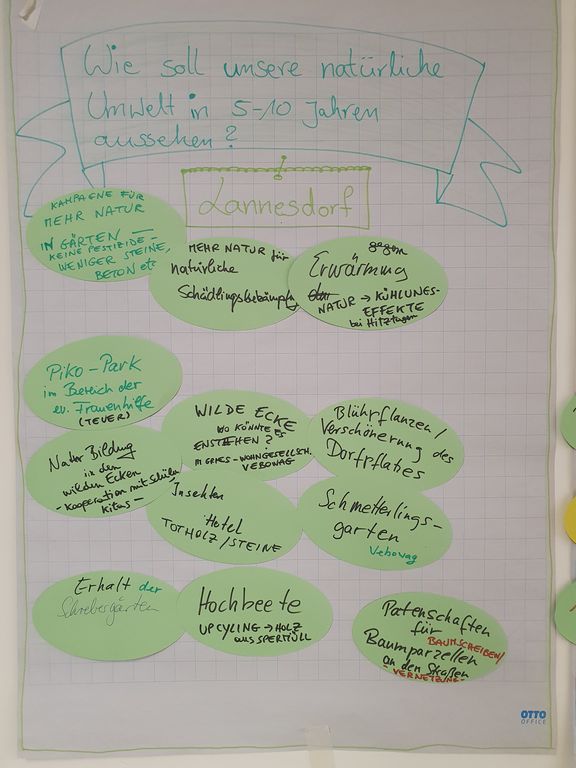 Wie soll unsere natürliche
Umwelt in 5-10 Jahren
aussehen?
Lannesdorf
KAMPAGNE FÜR
MEHR NATUR
IN GÄRTEN –
KEINE PESTIZIDE –
WENIGER STEINE,
BETON etc
MEHR NATUR für
natürliche
Schädlingsbekämpfg
gegen
Erwärmung
NATUR → KÜHLUNGS-
EFFEKTE
bei Hitztagen
Piko-Park
im Bereich der
ev. Frauenhilfe
(TEUER)
WILDE ECKE
WO KÖNNTE ES
ENSTEHEN?
WOHNGESELLSCH.
VEBOWAG
Blühpflanzen/
Verschönerung des
Dorfplatzes
Natur Bildung
in den
wilden Ecken
- Kooperation mit Schulen
Kitas -
Insekten
Hotel
TOTHOLZ/STEINE
Schmetterlings-
garten
Vebowag
Erhalt der
Schrebergärten
Hochbeete
UPCYLING → HOLZ
aus SPERMÜLL
Patenschaften
für BAUMSCHEIBEN/
Baumparzellen
an den Straßen
- VERNETZUNG -
OTTO
OFFICE